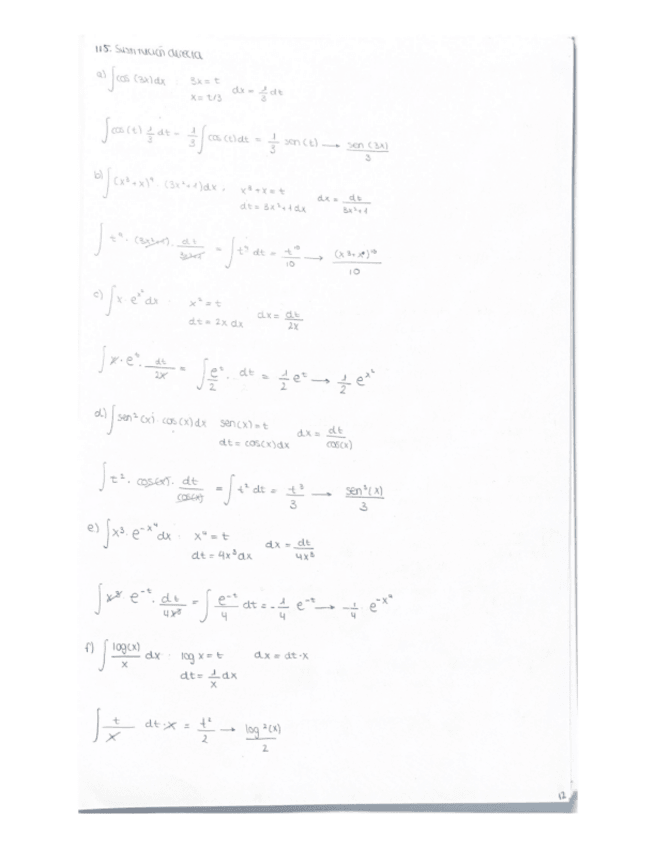 115. Sustitución directa
a) ∫cos (3x)dx . 3x = t
x = t/3 dx = 1/3 dt
∫cos(t) 1/3 dt = 1/3 ∫cos(t)dt = 1/3 sen(t) → sen (3x)/3
b) ∫(x³+x)⁹ · (3x²+1)dx . x³+x = t
dt = 3x²+1 dx dx = dt/3x²+1
∫ t⁹ · (3x²+1) · dt/3x²+1 = ∫t⁹ dt = t¹⁰/10 → (x³+x)¹⁰/10
c) ∫x·e^x² dx . x² = t
dt = 2x dx dx = dt/2x
∫ x · e^t · dt/2x = ∫ e^t/2 · dt = 1/2 e^t → 1/2 e^x²
d) ∫sen²(x) cos(x)dx sen(x) = t
dt = cos(x)dx dx = dt/cos(x)
∫t² · cos(x) · dt/cos(x) = ∫t² dt = t³/3 → sen³(x)/3
e) ∫x³ · e^-x⁴ dx . x⁴ = t
dt = 4x³dx dx = dt/4x³
∫x³ e^-t · dt/4x³ = ∫ e^-t/4 dt = -1/4 e^-t → -1/4 e^-x⁴
f) ∫ log(x)/x dx . log x = t dx = dt·x
dt = 1/x dx
∫ t/x dt·x = t²/2 → log²(x)/2
12